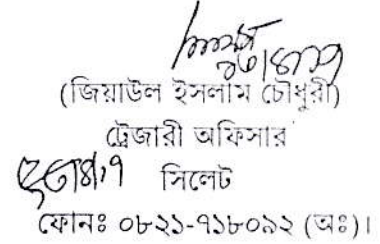 (জিয়াউল ইসলাম চৌধুরী)
ট্রেজারী অফিসার
সিলেট
ফোনঃ ০৮২১-৭১৮০৯২ (অঃ)।